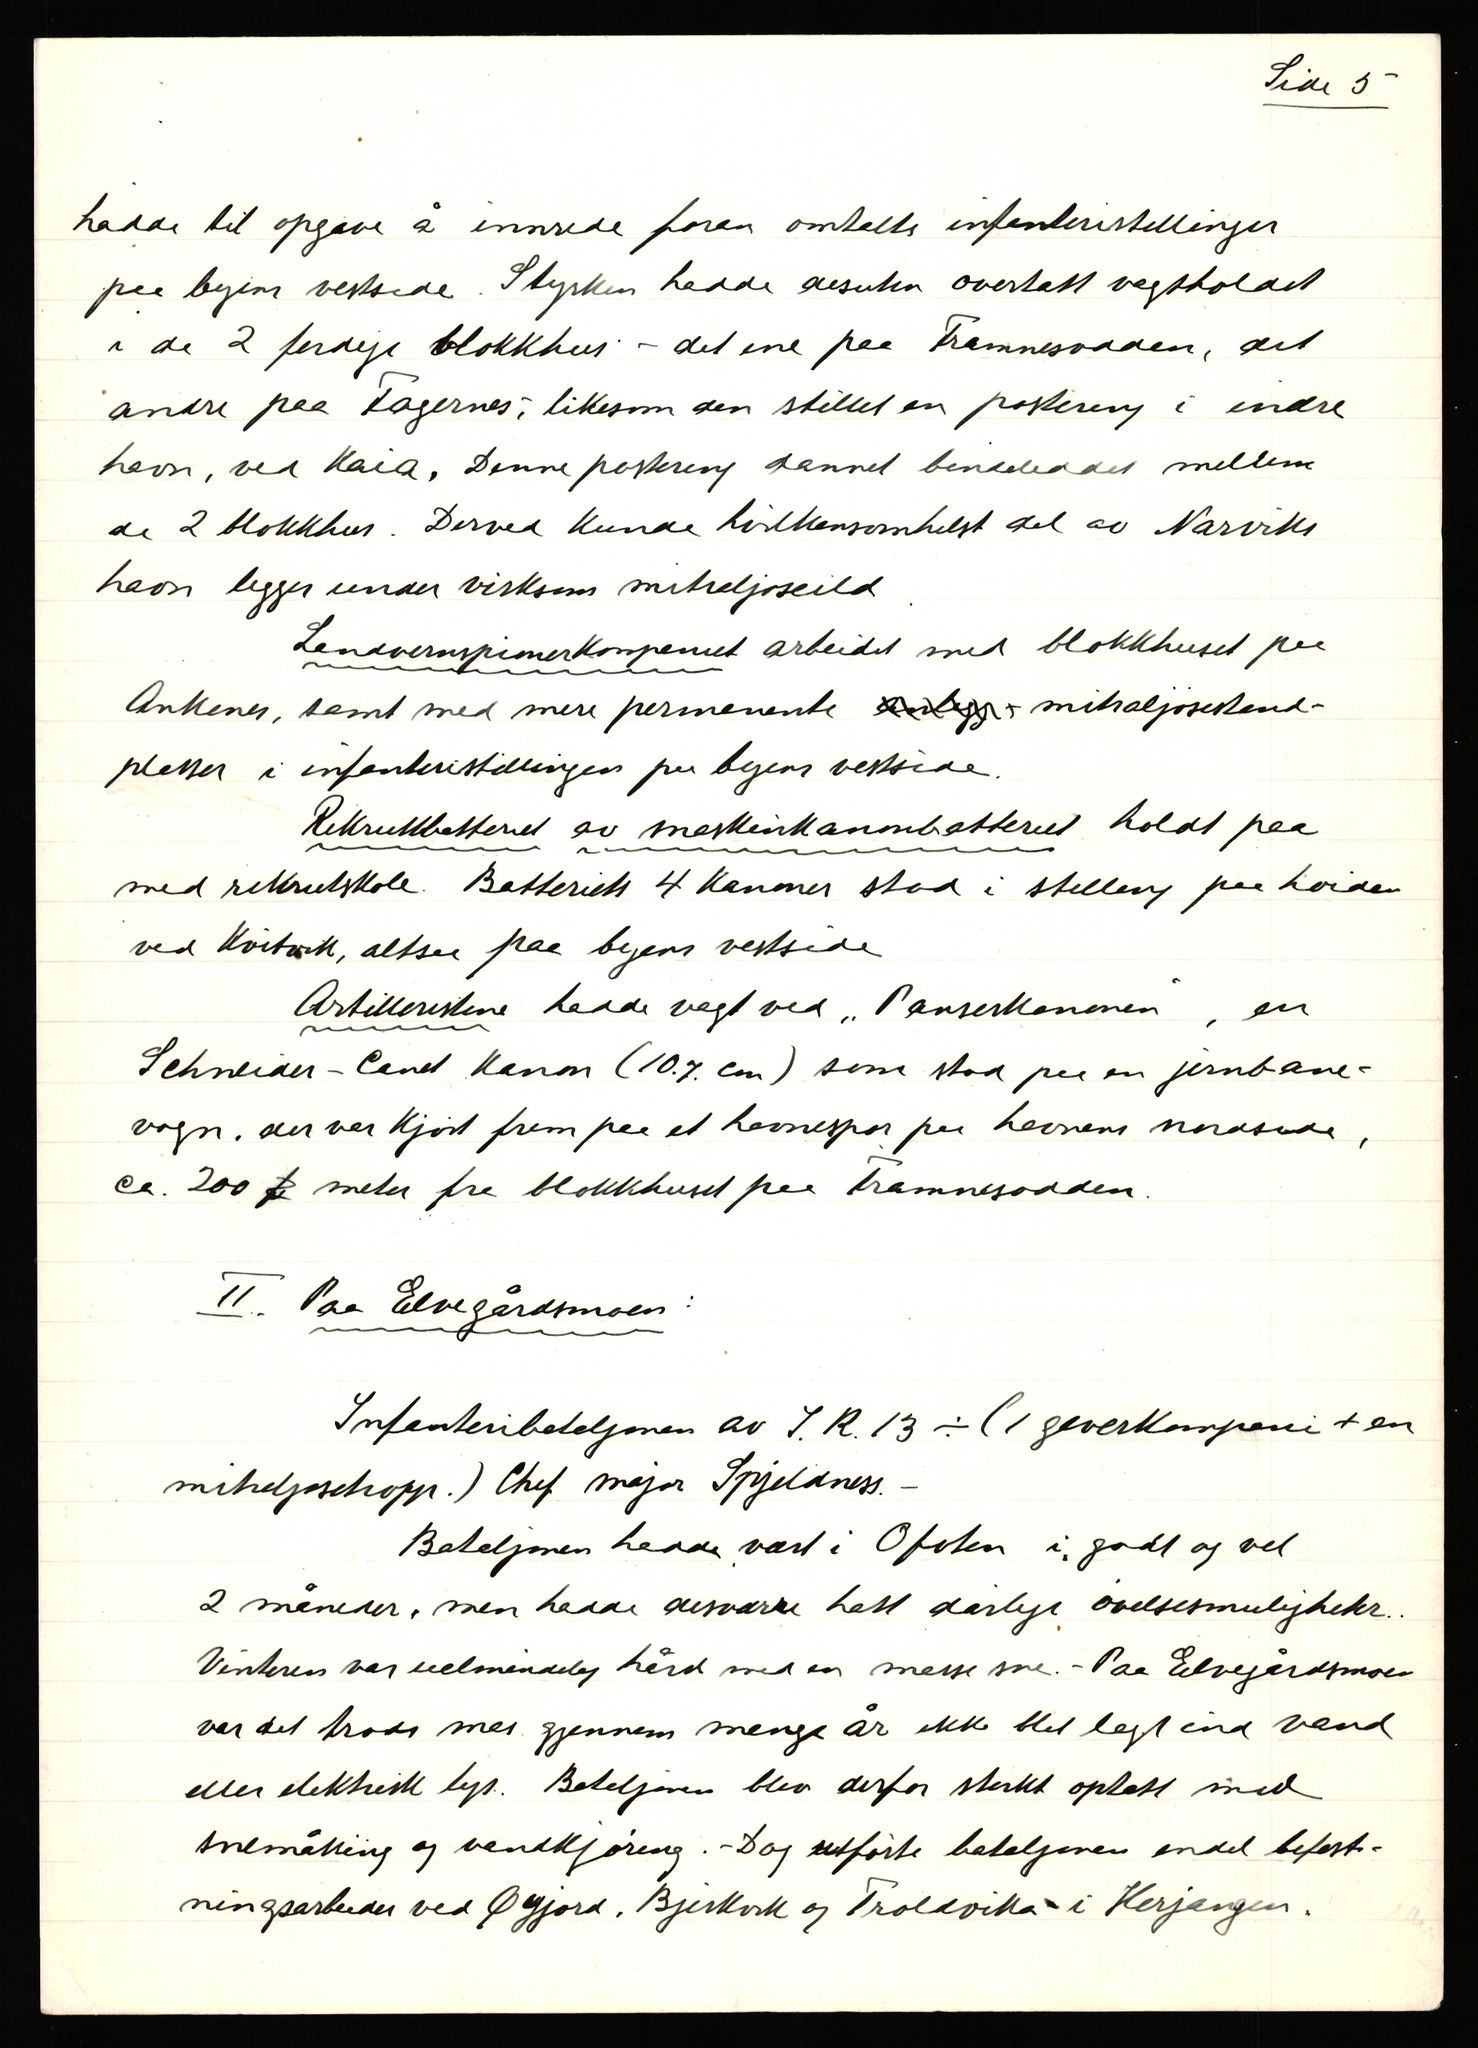 Side 5
hadde til opgave å innrede foran omtalte infanteristillinger
paa byens vestside. Styrken hadde desuten overtatt vagtholdet
i de 2 ferdige blokkhus - det ene paa Framnesodden, det
andre paa Fagernes, likesom den stillet en postering i indre
havn, ved Kaia. Denne postering dannet bindeleddet mellem
de 2 blokkhus. Derved kunde hvilkensomhelst del av Narviks
havn legges under virksom mitraljøseild.
Landvernspionerkompaniet arbeidet med blokkhuset paa
Ankenes, samt med mere permanente mitraljøsestand-
plasser i infanteristillingen paa byens vestside.
Rekruttbatteriet av maskinkanonbatteriet holdt paa
med rekrutskole. Batteriets 4 kanoner stod i stilling paa høiden
ved Kvitvik, altsaa paa byens vestside
Artilleristene hadde vagt ved „Panserkanonen", en
Schneider-Canet Kanon (10.7. cm) som stod paa en jernbane-
vogn, der var kjørt frem paa et havnespor paa havnens nordside,
ca. 200 meter fra blokkhuset paa Framnesodden.
II. Paa Elvegårdsmoen:
Infanteribataljonen av I.R. 13 ÷ (1 geverkompani + en
mitraljøsetropp.) Chef major Spjeldness.-
Bataljonen hadde vært i Ofoten i godt og vel
2 måneder, men hadde desværre hatt dårlige øvelsesmuligheter.
Vinteren var ualmindelig hård med en masse sne. - Paa Elvegårdsmoen
var det trods mas gjennem mange år ikke blet lagt ind vand
eller elektrisk lys. Bataljonen blev derfor sterkt optatt med
snemåking og vandkjøring. - Dog utførte bataljonen endel befest-
ningsarbeider ved Øyjord, Bjerkvik og Troldvika i Herjangen.